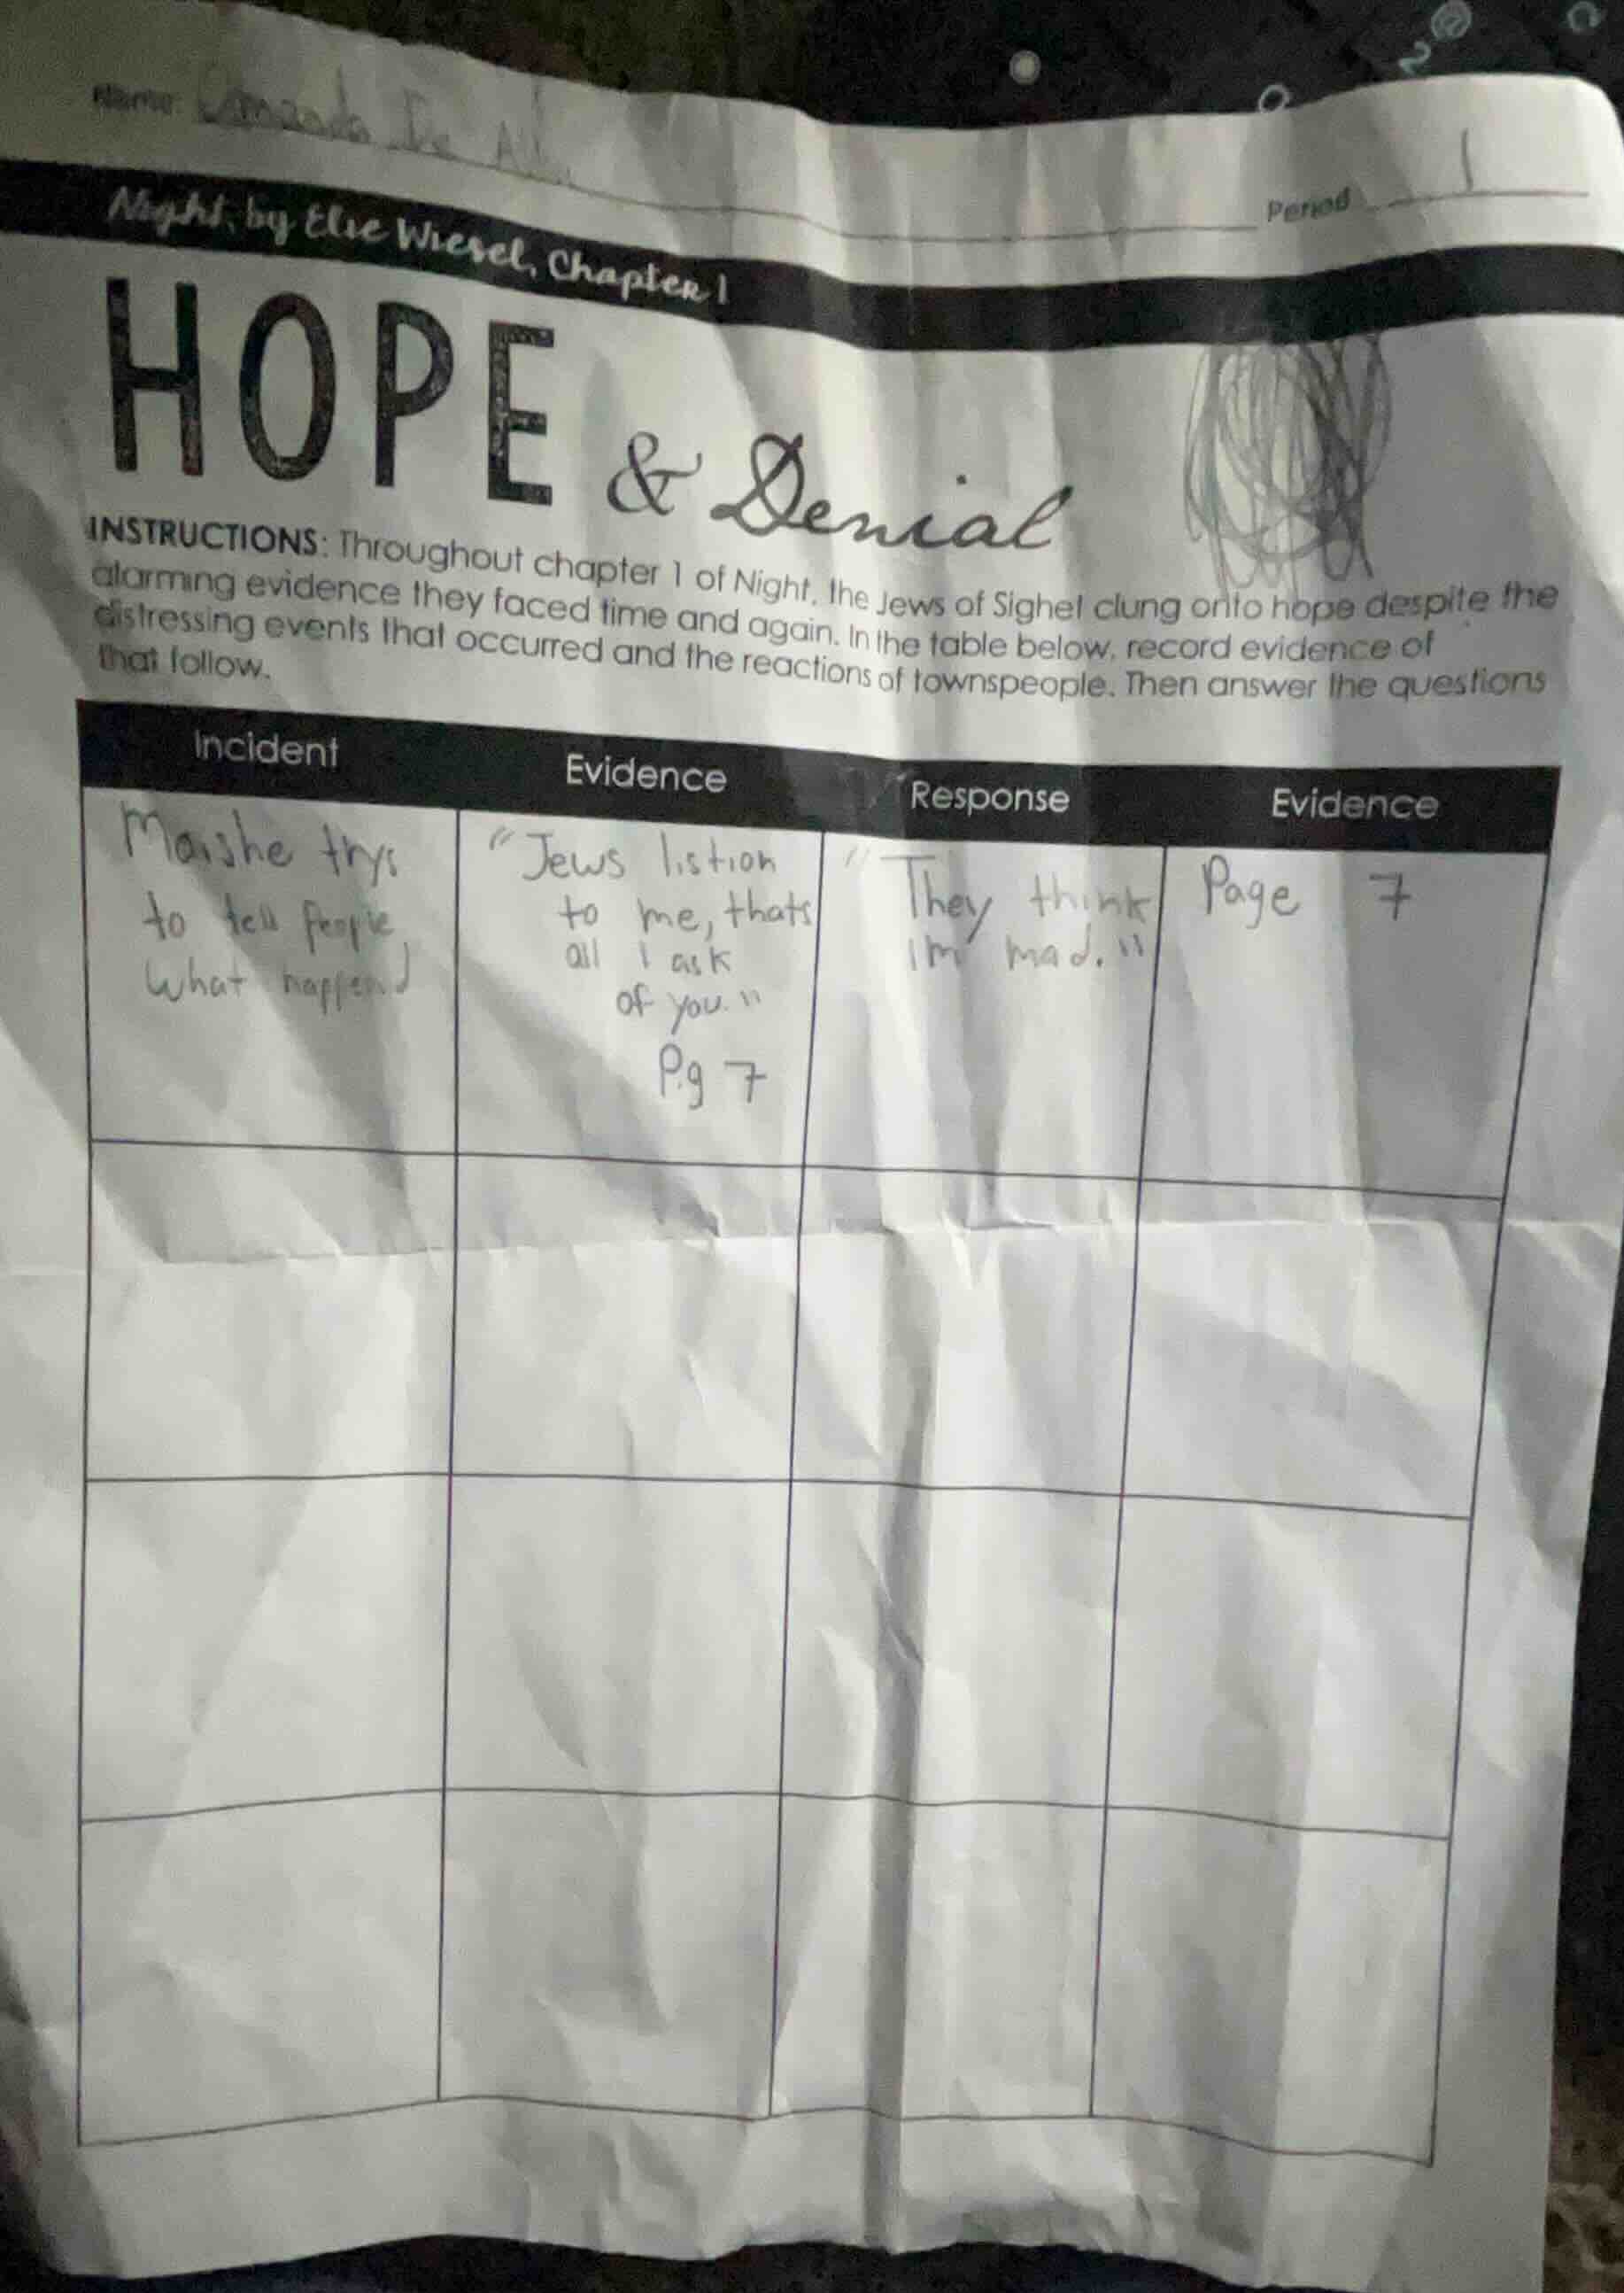 Name:
Period 1
Night, by Elie Wiesel, Chapter 1
HOPE & Denial
INSTRUCTIONS: Throughout chapter 1 of Night, the Jews of Sighet clung onto hope despite the
alarming evidence they faced time and again. In the table below, record evidence of
distressing events that occurred and the reactions of townspeople. Then answer the questions
that follow.
Incident
Evidence
Response
Evidence
Moishe trys
to tell people,
what happend
"Jews listion
to me, thats
all I ask
of you."
Pg 7
"They think
im mad."
Page 7